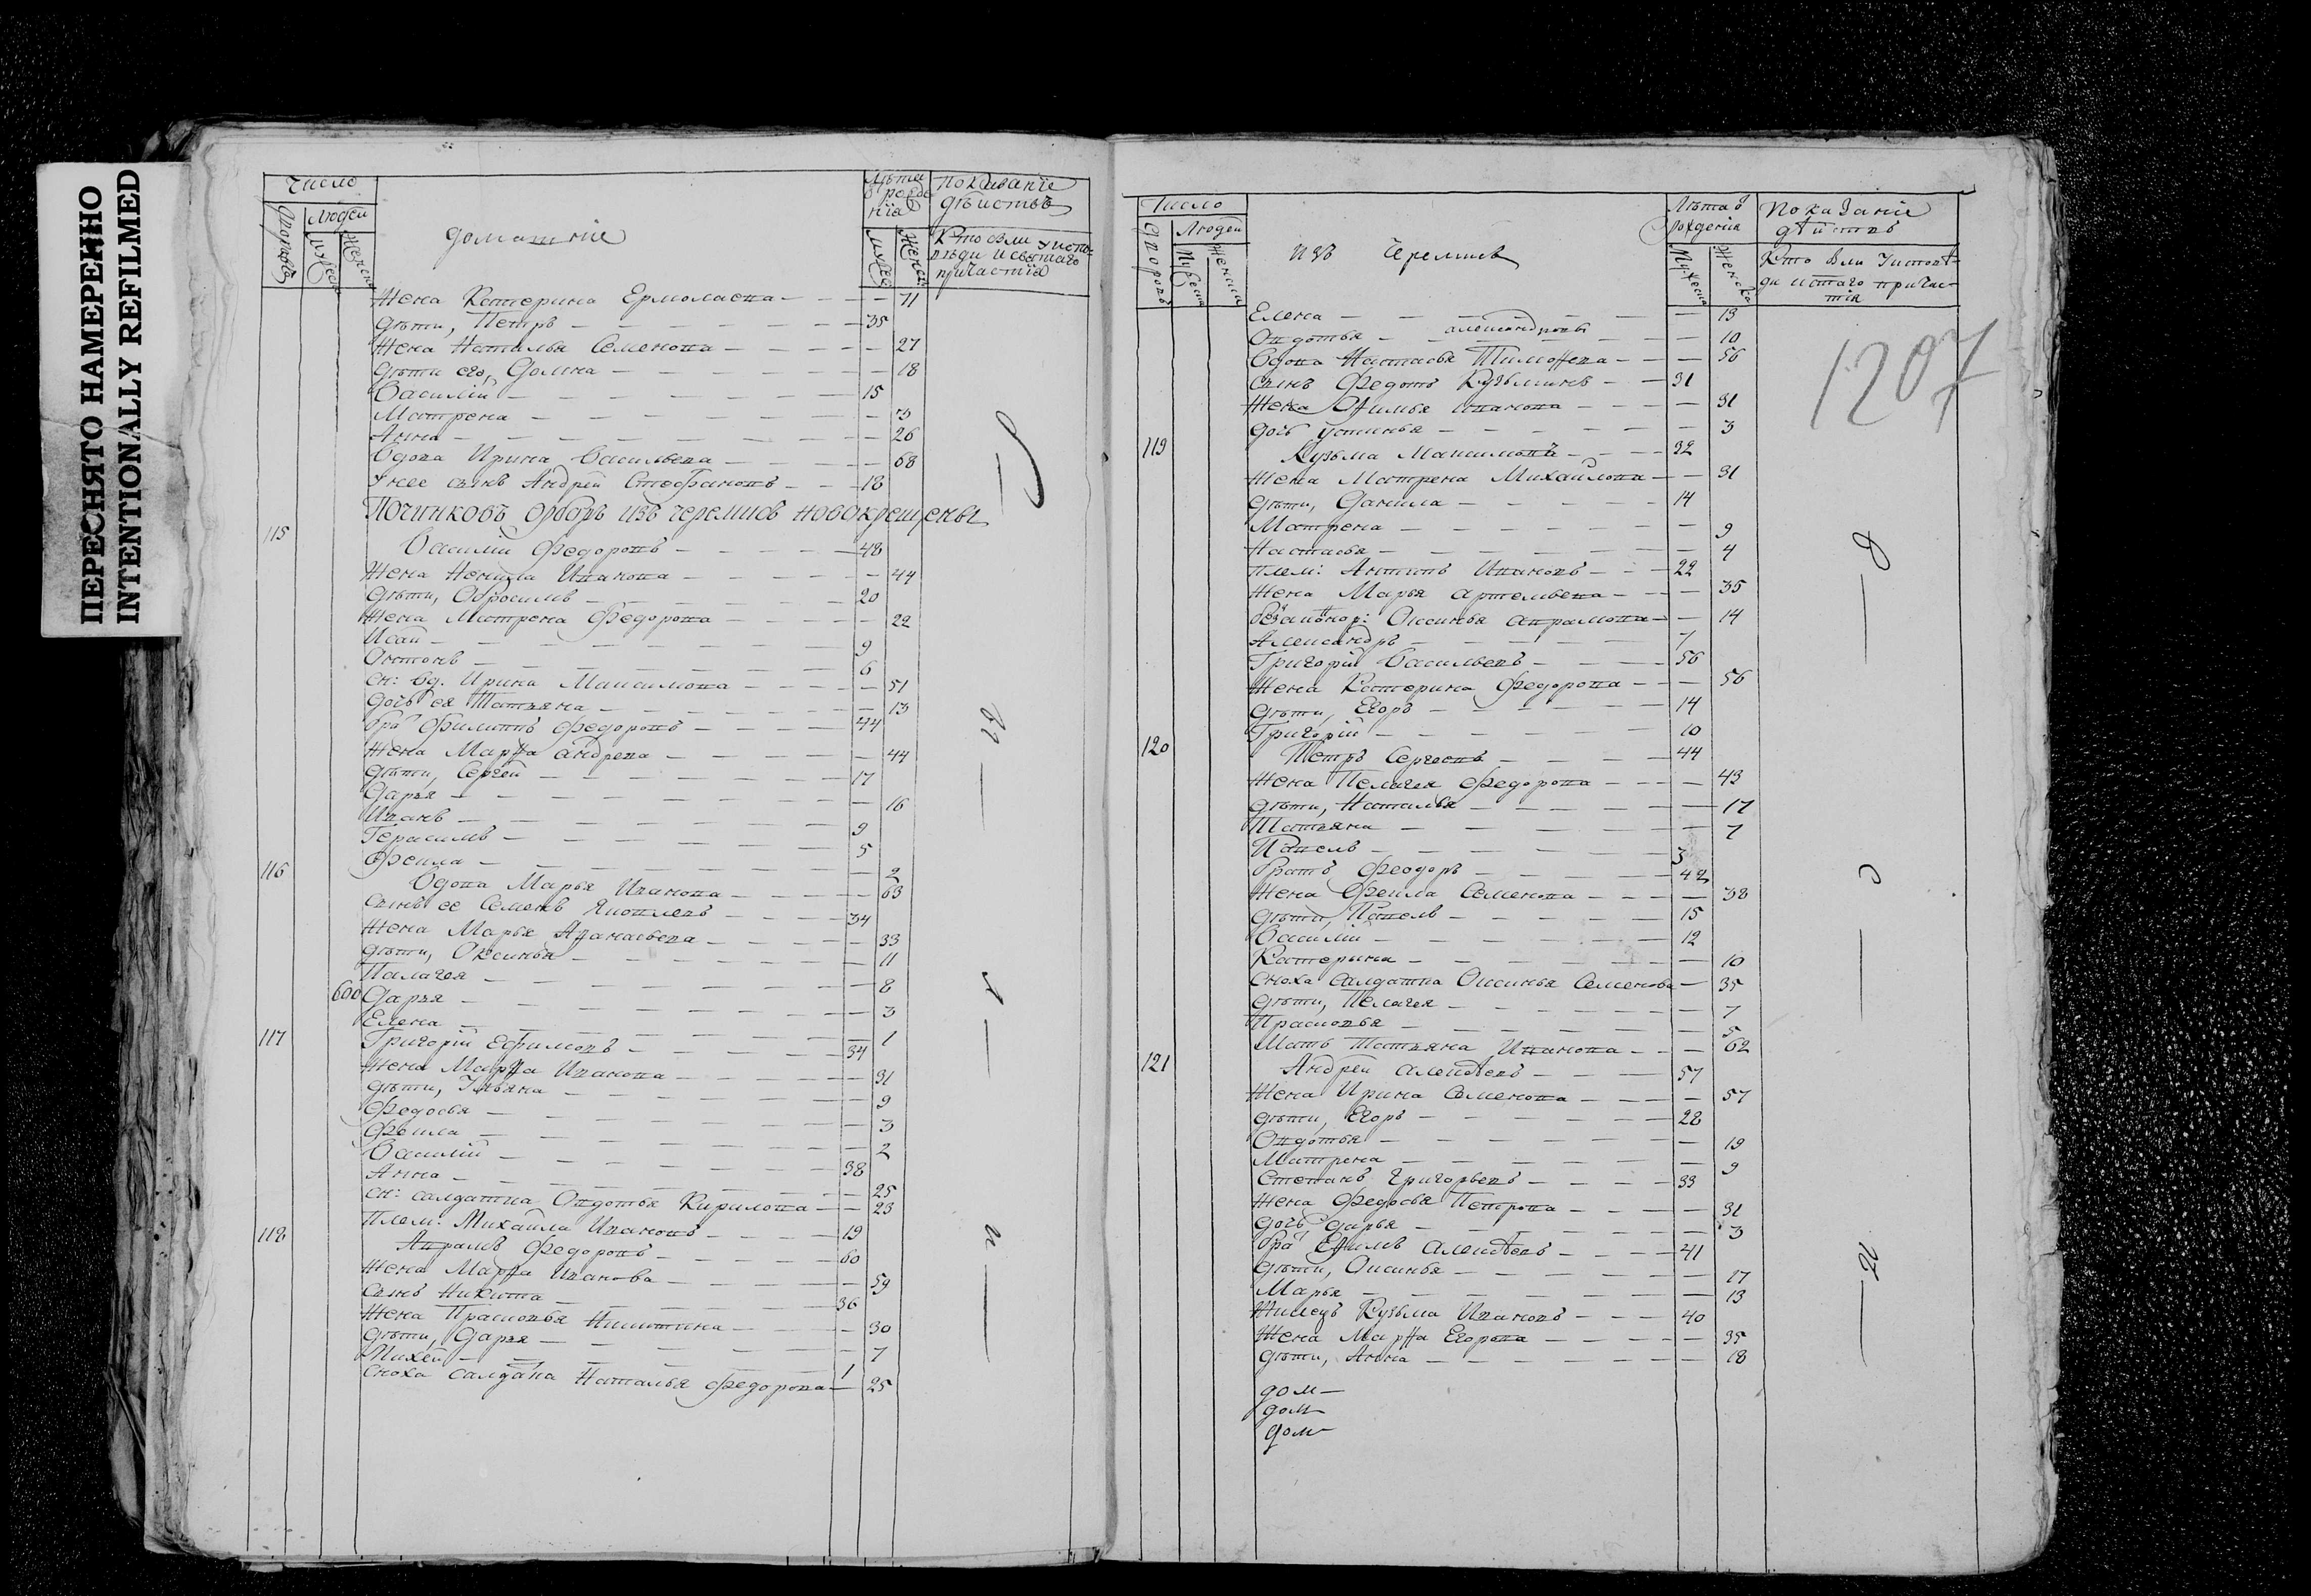 ПЕРЕСНЯТО НАМЕРЕННО
INTENTIONALLY REFILMED
Число
Дворовъ
Людей
Мужеска
Женска
домашнiе
Лѣта
рожде
нiя
Мужес
Женск
показанiе
дѣиствъ
Кто был у испо-
вѣди и святаго
причастiя
Жена Катерина Ермолаева — — — 71
дѣти, Петръ — — — 35
Жена Наталья Семенова — — — 27
дѣти его, Домна — — — 18
Василiй — — — 15
Матрена — — — 3
Анна — — — 26
Вдова Ирина Васильева — — — 68
У нее сынъ Андрей Стефановъ — — 18
Починковъ изъ черемисъ новокрещены
115 Василiй Федоровъ — — — 48
Жена Ненила Иванова — — — 44
дѣти, Обросимъ — — — 20
Жена Матрена Федорова — — — 22
Исаи — — — 9
Онтонъ — — — 6
сн: вд. Ирина Максимова — — — 51
дочь ея Татьяна — — — 13
бра Филиппъ Федоровъ — — — 44
Жена Марѳа андреева — — — 44
дѣти, Сергей — — — 17
Дарья — — — 16
Иванъ — — — 9
Герасимъ — — — 5
Фекла — — — 2
116 Вдова Марья Иванова — — — 63
Сынъ ее Семенъ Яковлевъ — — — 34
Жена Марья Аѳанасьева — — — 33
дѣти, Оксинья — — — 11
Палагея — — — 8
600 Дарья — — — 3
Елена — — — 1
117 Григорiй Ефимовъ — — — 34
Жена Марѳа Иванова — — — 31
дѣти, Ульяна — — — 9
Федосья — — — 3
Фекла — — — 2
Василiй — — — 38
Анна — — — 25
сн: салдатка Овдотья Кирилова — — 23
Плем: Михайла Ивановъ — — — 19
118 Аврамъ Федоровъ — — — 60
Жена Марѳа Иванова — — — 59
Сынъ Никита — — — 36
Жена Прасковья Никитина — — — 30
дѣти, Дарья — — — 7
Михей — — — 1
Сноха салдатка Наталья Федорова — 25
Число
Дворовъ
Людей
Мужеска
Женска
изъ Черемисъ
Лѣта
рожденiя
Мужеска
Женска
Показанiе
дѣиствъ
Кто был у испов-
ди истаго причас-
тiя
1207
Елена — — — 13
Овдотья — александровы — 10
Вдова Настасья Тимоѳеева — — 56
сынъ Федотъ Кузьминъ — — 31
Жена Офимья иванова — — — 31
дочь устинья — — — 3
119 Кузьма Максимовъ — — — 32
Жена Матрена Михайлова — — 31
дѣти, Данила — — — 14
Матрена — — — 9
Настасья — — — 4
плем: Антипъ Ивановъ — — — 22
Жена Марья артемьева — — — 35
Оксинья аврамова — — 14
Александръ — — — 7
Григорiй Васильевъ — — — 56
Жена Катерина Федорова — — — 56
дѣти, Егоръ — — — 14
Григорiй — — — 10
120 Петръ Сергеевъ — — — 44
Жена Пелагея Федорова — — — 43
дѣти, Наталья — — — 17
Татьяна — — — 7
Павелъ — — — 3
братъ Феодоръ — — — 42
Жена Фекла Семенова — — — 38
дѣти, Павелъ — — — 15
Василiй — — — 12
Катерина — — — 10
Сноха салдатка Оксинья Семенова — 35
дѣти, Пелагея — — — 7
Прасковья — — — 5
Мать Татьяна Иванова — — — 62
121 Андрей алексѣевъ — — — 57
Жена Ирина Семенова — — — 57
дѣти, Егоръ — — — 28
Овдотья — — — 19
Матрена — — — 9
Степанъ Григорьевъ — — — 33
Жена Федосья Петрова — — — 31
дочь дарья — — — 3
бра Ефимъ алексѣевъ — — — 41
дѣти, Оксинья — — — 17
Марья — — — 13
Жилецъ Кузьма Ивановъ — — — 40
Жена Марѳа Егорова — — — 35
дѣти, Анна — — — 18
дом—
дом
дом—